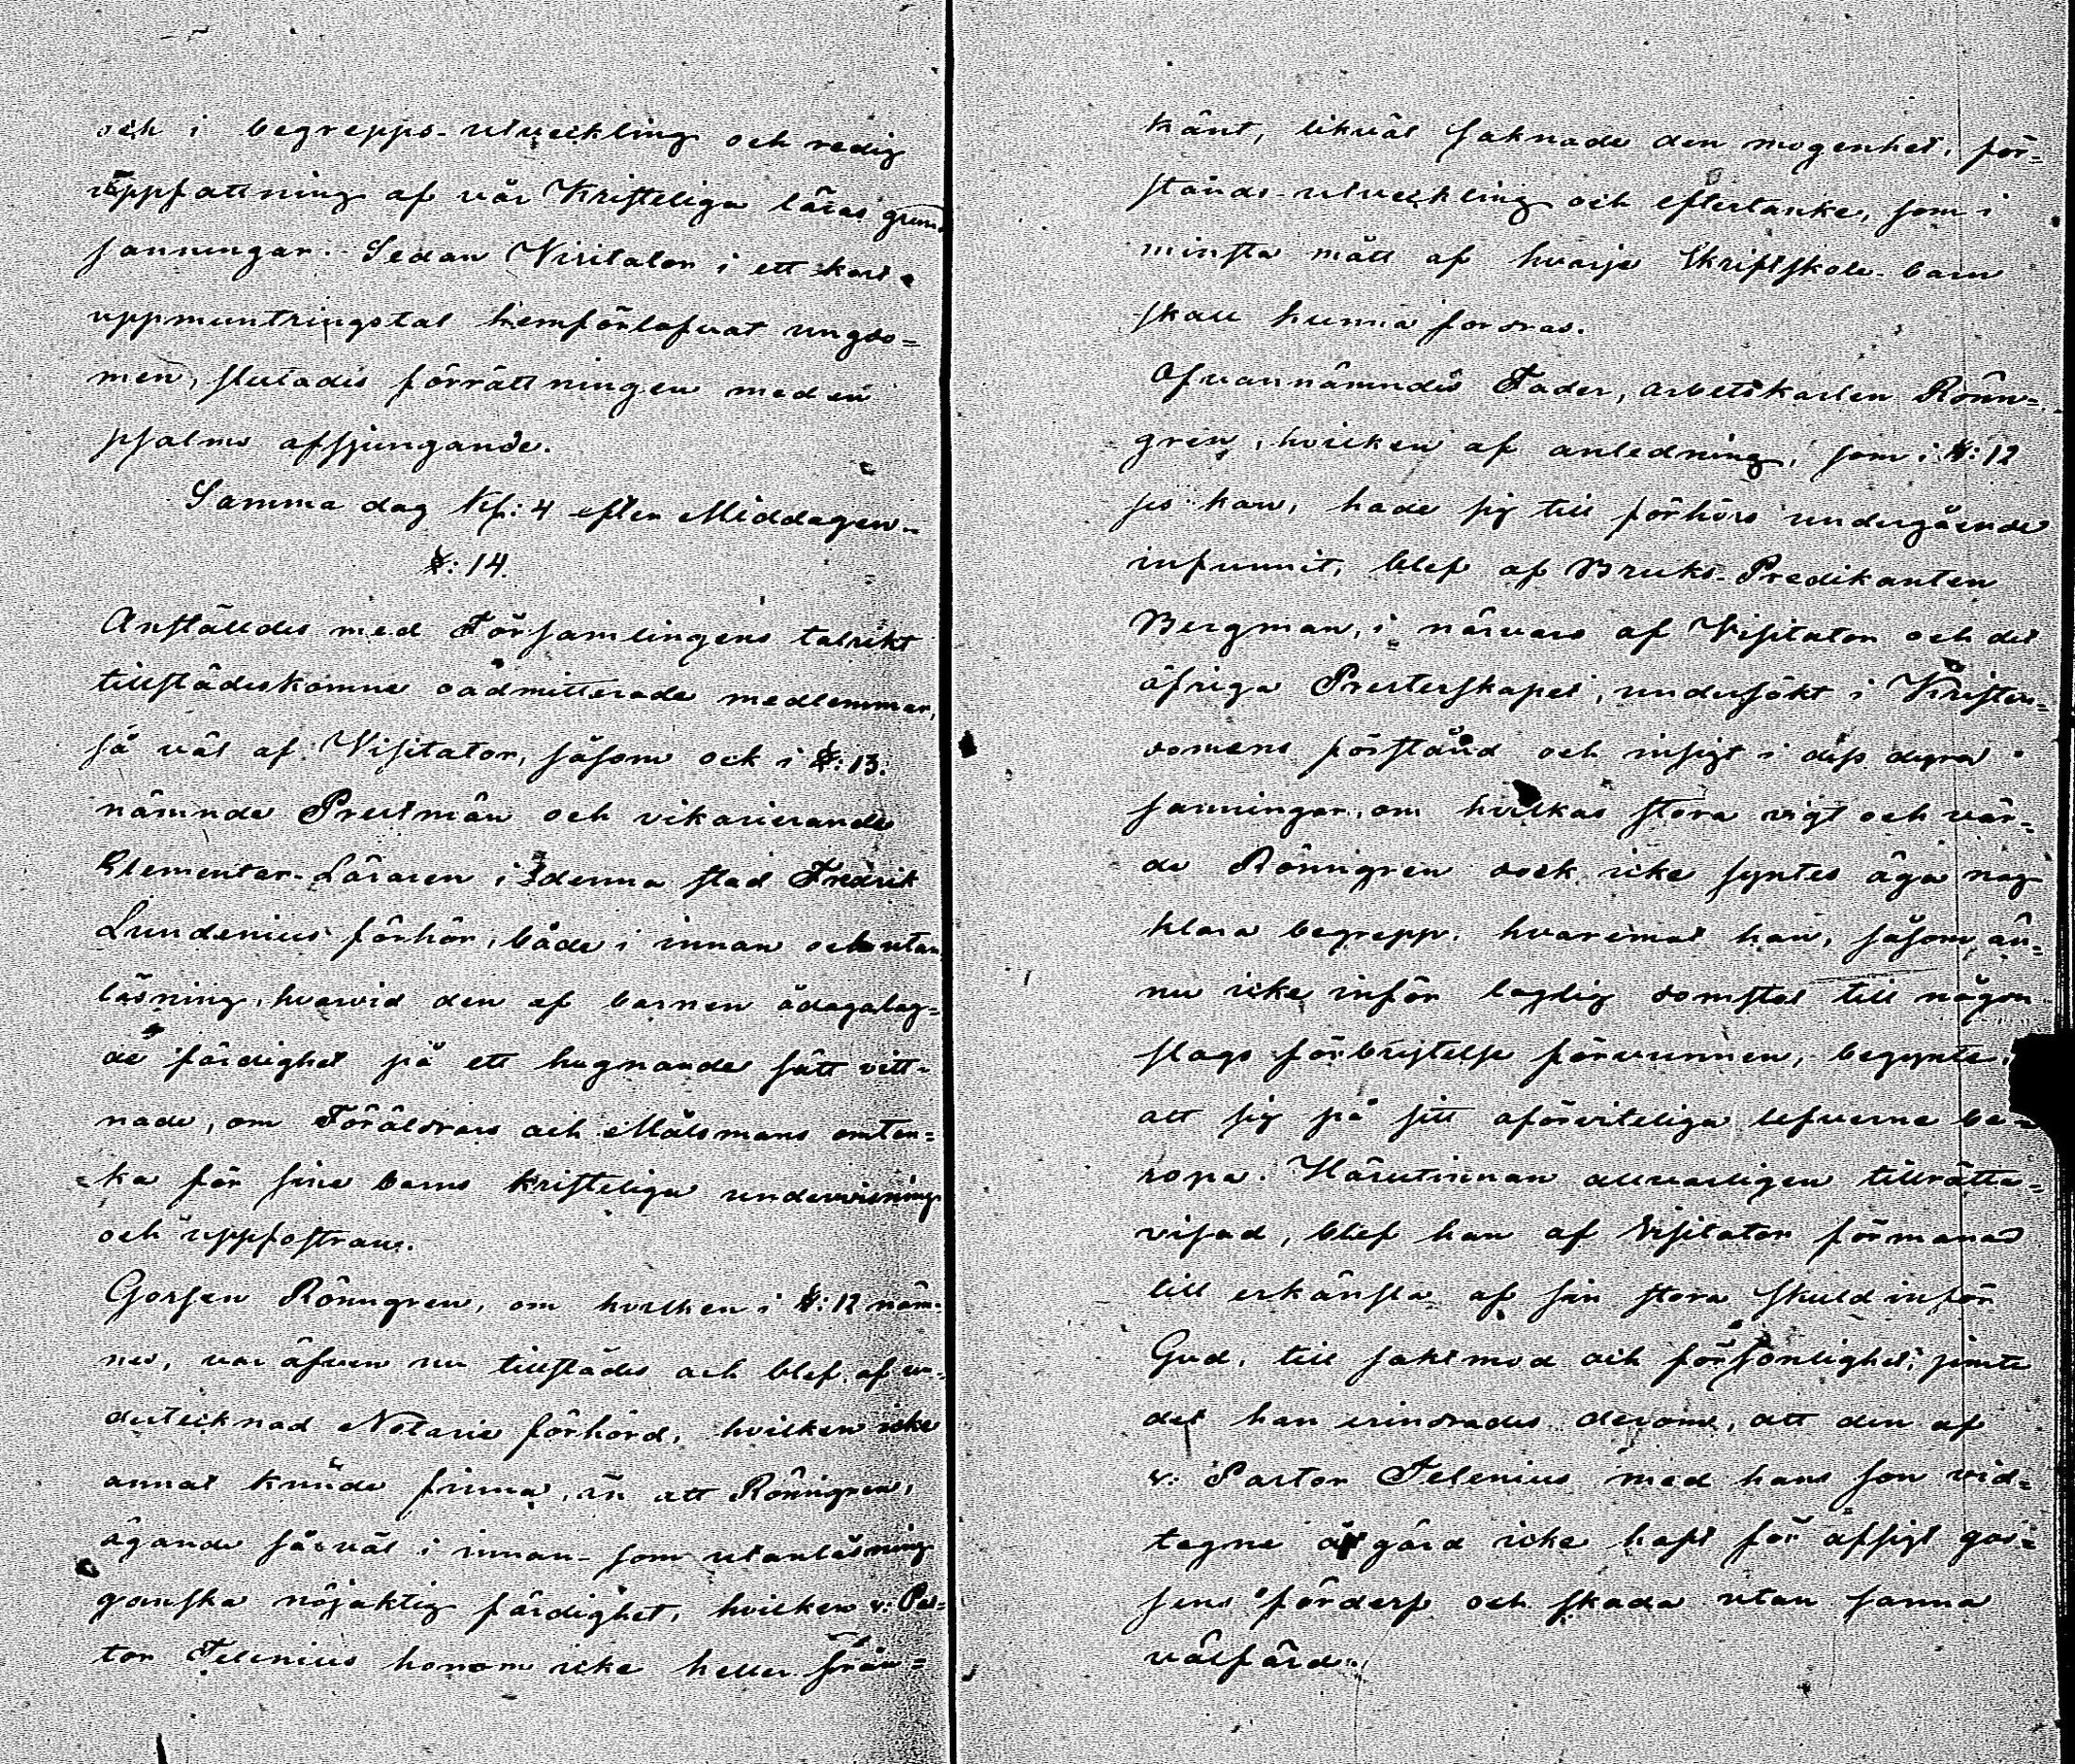 och i begrepps-utveckling och redig
uppfattning af vår Kristeliga läras grund
sanningar. Sedan Visitator i ett kort
uppmuntringstal hemförlofvat ungdo=
men, slutades förrättningen med en
psalms afsjungande.
Samma dag Kl: 4 efter Middagen.
§: 14.
Anställdes med Församlingens talrikt
tillstädeskomne oadmitterade medlemmar,
så väl af Visitator, såsom ock i §: 13.
nämnde Prestmän och vikarierande
Elementar-Läraren i denna stad Fredrik
Lundenius förhör, både i innan och utan
läsning, hvarvid den af barnen ådagalag=
de färdighet på ett hugnande sätt vitt=
nade, om Föräldrars och Målsmans omtan=
ka för sine barns kristeliga undervisning
och uppfostran.
Gossen Rönngren, om hvilken i §: 12 näm=
nes, var äfven nu tillstädes och blef af un=
dertecknad Notarie förhörd, hvilken icke
annat kunde finna, än att Rönngren,
ägande såväl i innan- som utanläsning
ganska nöjaktig färdighet, hvilken v: Pas=
tor Felenius honom icke heller från=
känt, likväl saknade den mogenhet, för=
stånds-utveckling och eftertanke, som i
minsta mått af hvarje Skriftskole-barn
skall kunna fordras.
Ofvannämndes Fader, arbetskarlen Rönn=
gren, hvilken af anledning, som i §: 12
ses kan, hade sig till förhörs undergående
infunnit, blef af Bruks-Predikanten
Bergman, i närvaro af Visitator och det
öfriga Presterskapet, undersökt i Kristen=
domens förstånd och insigt i dess dyra
sanningar, om hvilkas stora vigt och vär=
de Rönngren dock icke syntes äga nog
klara begrepp, hvaremot han, såsom än=
nu icke inför laglig domstol till någon
slags förbrytelse förvunnen, begynte
att sig på sitt oförviteliga lefverne be=
ropa. Härutinnan allvarligen tillrätta=
visad, blef han af Visitator förmanad
till erkänsla af sin stora skuld inför
Gud, till saktmod och försonlighet, jemte
det han erindrades derom, att den af
v: Pastor Felenius med hans son vid=
tagne åtgärd icke haft för afsigt gos=
sens förderf och skada utan sanna
välfärd.